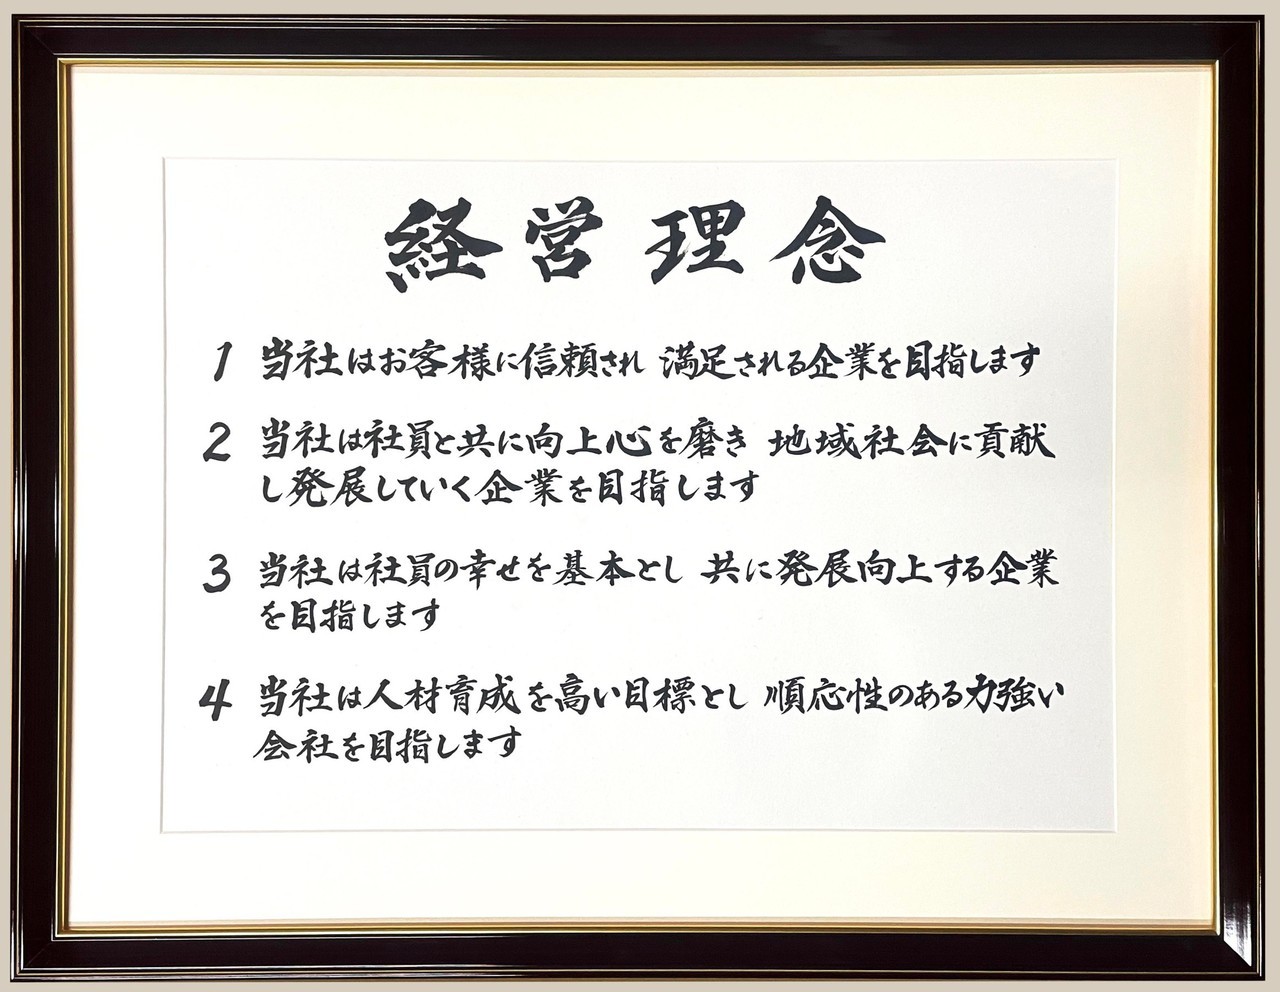 経営理念
1 当社はお客様に信頼され 満足される企業を目指します
2 当社は社員と共に向上心を磨き 地域社会に貢献
し発展していく企業を目指します
3 当社は社員の幸せを基本とし 共に発展向上する企業
を目指します
4 当社は人材育成を高い目標とし 順応性のある力強い
会社を目指します